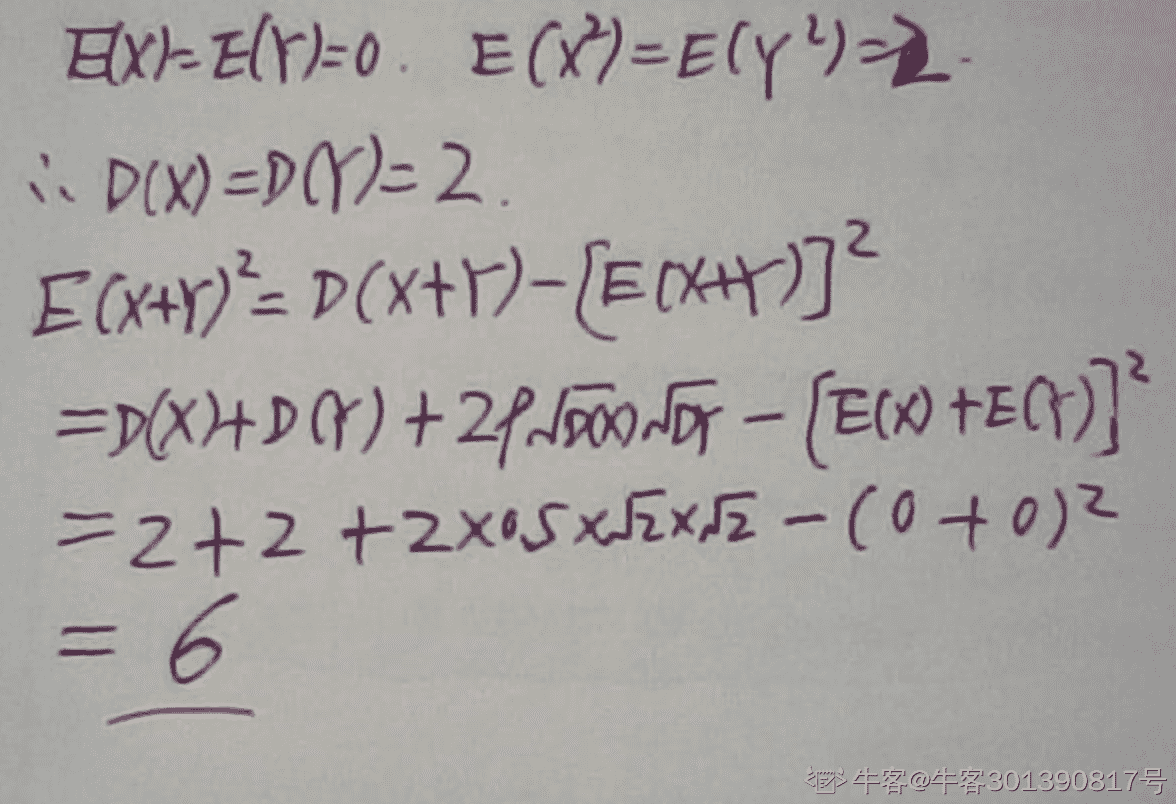 E(X)=E(Y)=0. E(X²)=E(Y²)=2.
∴ D(X)=D(Y)=2.
E(X+Y)²=D(X+Y)-[E(X+Y)]²
=D(X)+D(Y)+2ρ√D(X)√DY-[E(X)+E(Y)]²
=2+2+2×0.5×√2×√2-(0+0)²
=6
牛客@牛客301390817号